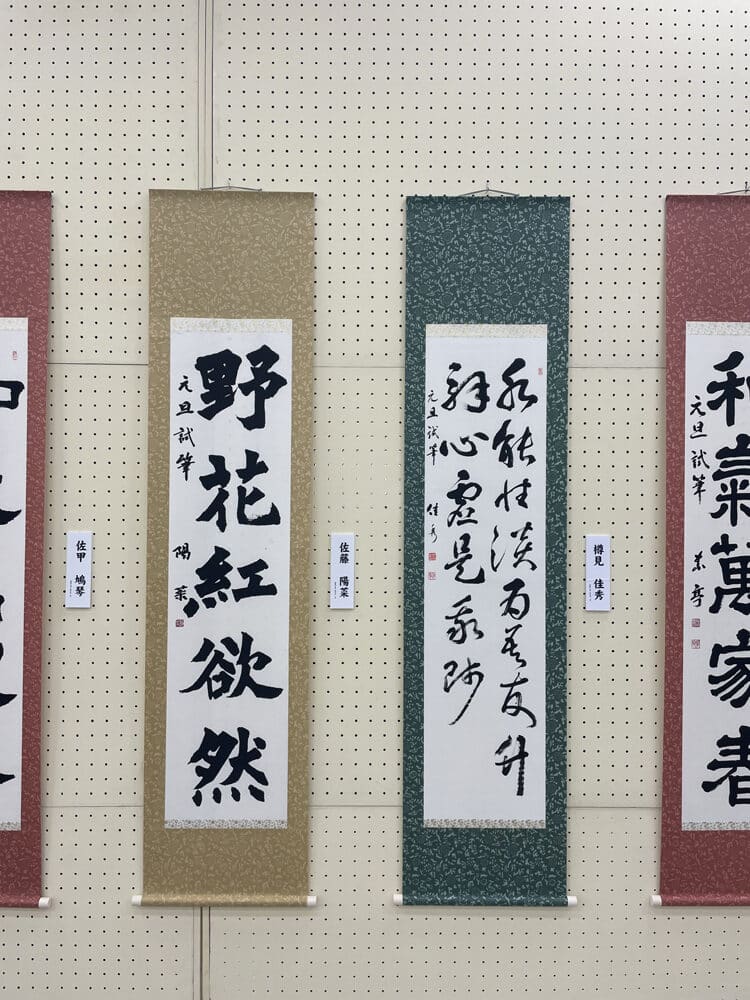 和氣萬家春
元旦試筆
樽見 佳秀
水能性淡為吾友竹
解心虚是我師
元旦試筆 佳秀
佐藤 陽菜
野花紅欲然
元旦試筆 陽菜
佐甲 鳩琴